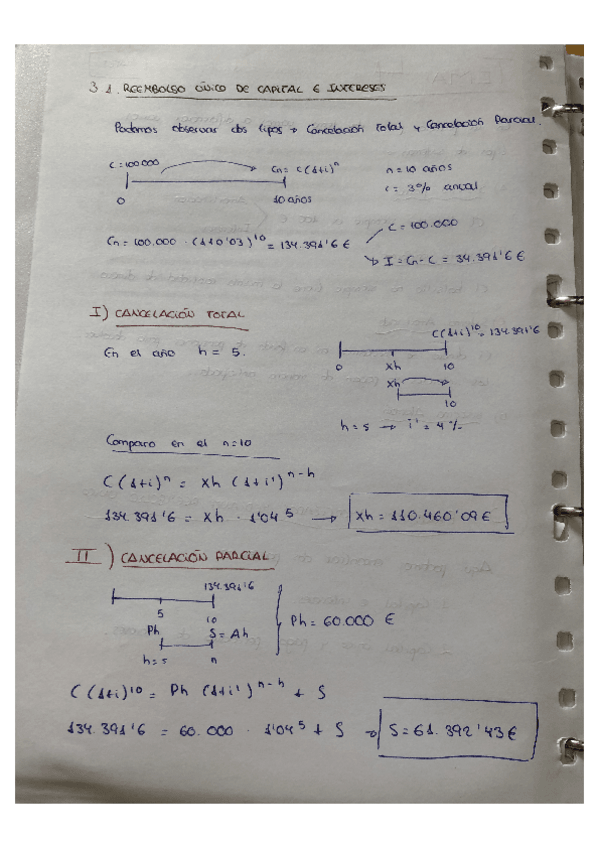 3 1. REEMBOLSO ÚNICO DE CAPITAL E INTERESES
Podemos observar dos tipos → Cancelación Total y Cancelación Parcial.
C = 100.000
Cn = C(1+i)^n
n = 10 años
0
10 años
i = 3% anual
Cn = 100.000 · (1+0'03)^10 = 134.391'6 €
C = 100.000
I = Cn - C = 34.391'6 €
I) CANCELACIÓN TOTAL
C(1+i)^10 = 134.391'6
En el año h = 5.
0
Xh
10
Xh
10
h = 5 → i' = 4%
Comparo en el n=10
C(1+i)^n = Xh (1+i')^n-h
134.391'6 = Xh · 1'04^5 → Xh = 110.460'09 €
II) CANCELACIÓN PARCIAL
134.391'6
5
10
Ph
S = Ah
Ph = 60.000 €
h = 5
n
C(1+i)^10 = Ph (1+i')^n-h + S
134.391'6 = 60.000 · 1'04^5 + S → S = 61.392'43 €